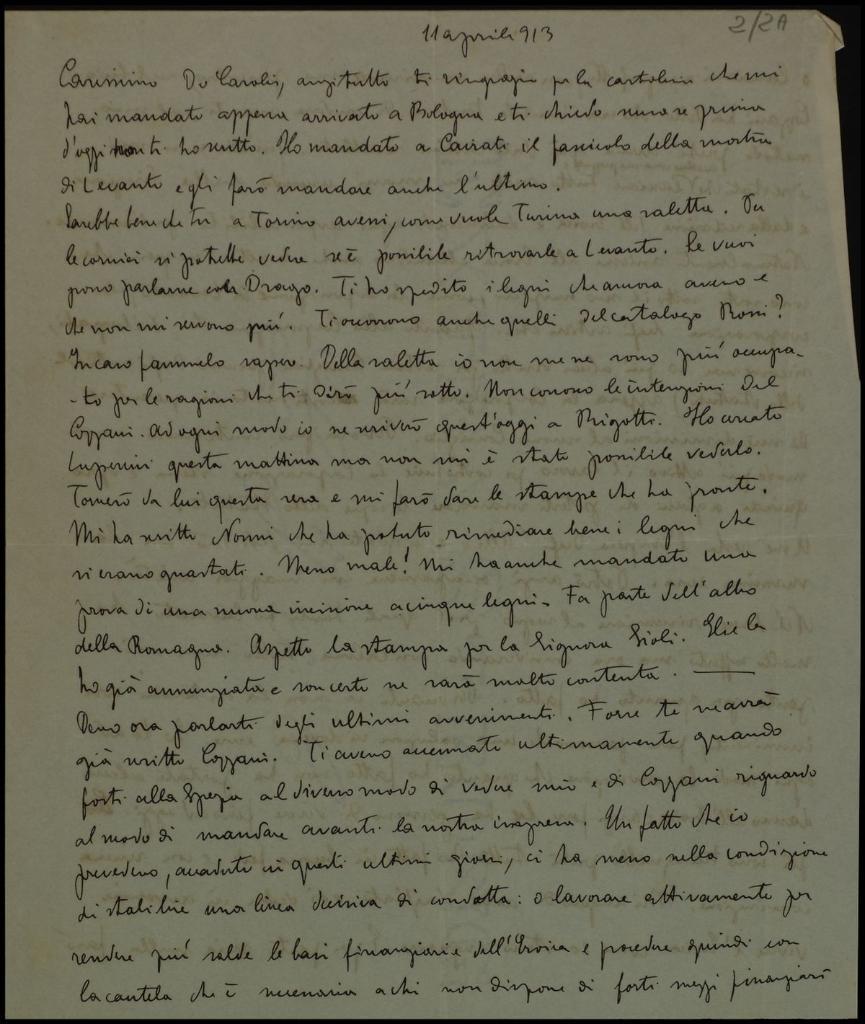 11 aprile 913
2/2A
Carissimo De Carolis, anzitutto ti ringrazio per la cartolina che mi
hai mandato appena arrivato a Bologna e ti chiedo scusa se prima
d'oggi non ti ho scritto. Ho mandato a Cairati il fascicolo della mostra
di Levanto e gli farò mandare anche l'ultimo.
Sarebbe bene che tu a Torino avessi, come vuole Turina una saletta. Per
le cornici si potrebbe vedere se è possibile ritrovarle a Levanto. Se vuoi
posso parlarne con Drago. Ti ho spedito i legni che ancora avevo e
che non mi servono più. Ti occorrono anche quelli del catalogo Rossi?
In caso fammelo sapere. Della saletta io non me ne sono più occupa-
-to per le ragioni che ti dirò più sotto. Non conosco le intenzioni del
Cozzani. Ad ogni modo io ne scriverò quest'oggi a Rigotti. Ho cercato
Luperini questa mattina ma non mi è stato possibile vederlo.
Tornerò da lui questa sera e mi farò dare le stampe che ha pronte.
Mi ha scritto Nonni che ha potuto rimediare bene i legni che
si erano guastati. Meno male! Mi ha anche mandato una
prova di una nuova incisione a cinque legni. Fa parte dell'albo
della Romagna. Aspetto la stampa per la Signora Gioli. Glie la
ho già annunziata e son certo ne sarà molto contenta.
Devo ora parlarti degli ultimi avvenimenti. Forse te ne avrà
già scritto Cozzani. Ti avevo accennato ultimamente quando
fosti alla Spezia al diverso modo di vedere mio e di Cozzani riguardo
al modo di mandare avanti la nostra impresa. Un fatto che io
prevedevo, accaduto in questi ultimi giorni, ci ha messo nella condizione
di stabilire una linea decisiva di condotta: o lavorare attivamente per
rendere più salde le basi finanziarie dell'Eroica e procedere quindi con
la cautela che è necessaria a chi non dispone di forti mezzi finanziari